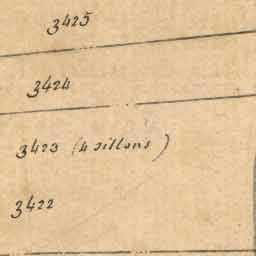 3425
3424
3423 (4 sillons)
3422